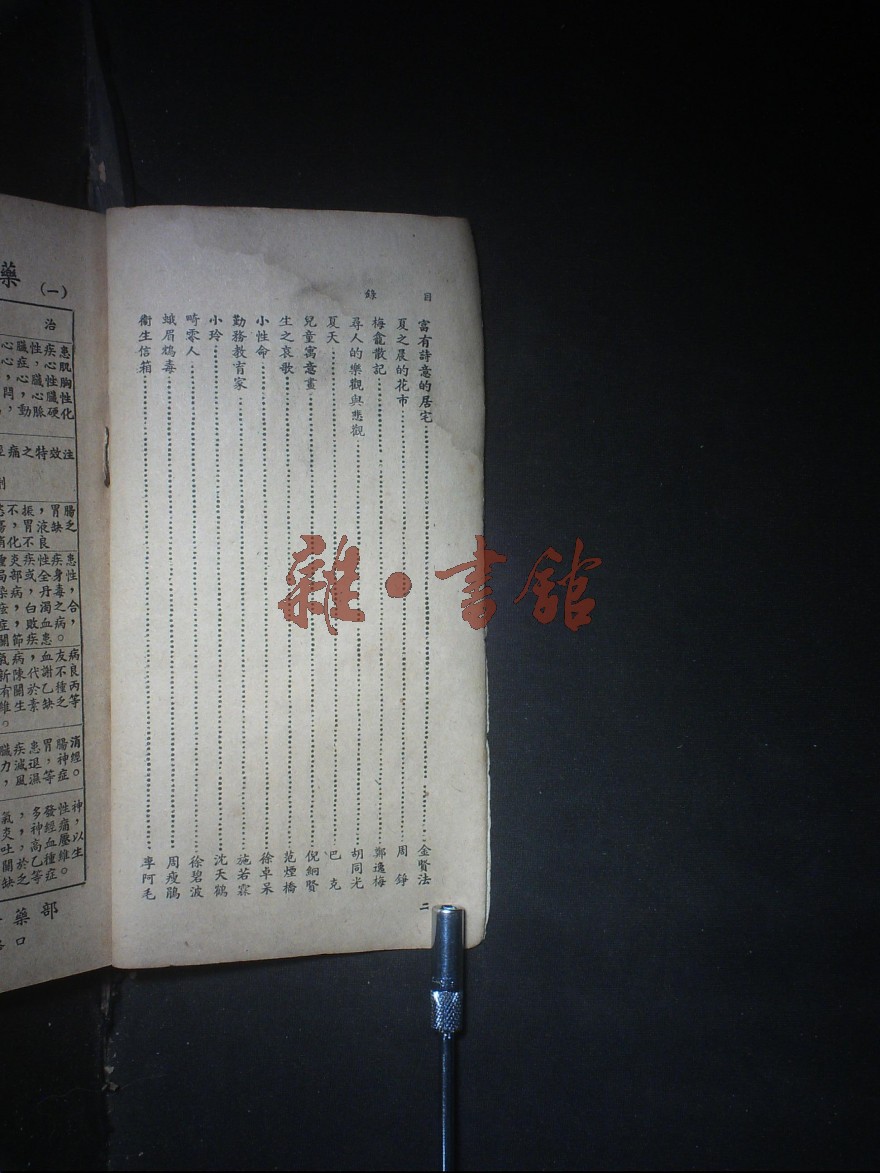 目
錄
富有詩意的居宅 金賢法
夏之晨的花市 周錚
梅龕散記 鄭逸梅
尋人的樂觀與悲觀 胡同光
夏天 巴克
兒童寓意畫 倪絅賢
生之哀歌 范煙橋
小性命 徐卓呆
勤務教育家 施若霖
小玲 沈天鶴
畸零人 徐碧波
蛾眉鴆毒 周瘦鵑
衞生信箱 李阿毛
二
藥 (一)
治
經痛之特效注
不振,胃腸
胃液缺乏
消化不良
炎疾性疾患
局部或全身性
染病,丹毒,
白濁之合,
症,敗血病,
關節疾患。
氣病,血友病
新陳代謝不良
有關於乙種丙
維生素缺乏等
。
臟疾患胃腸消
力減退,神經
,風濕等症。
氣,多發性神
炎,神經痛,
吐,高血壓以
關於乙種維生
缺乏等症。
藥部
口
雜·書館